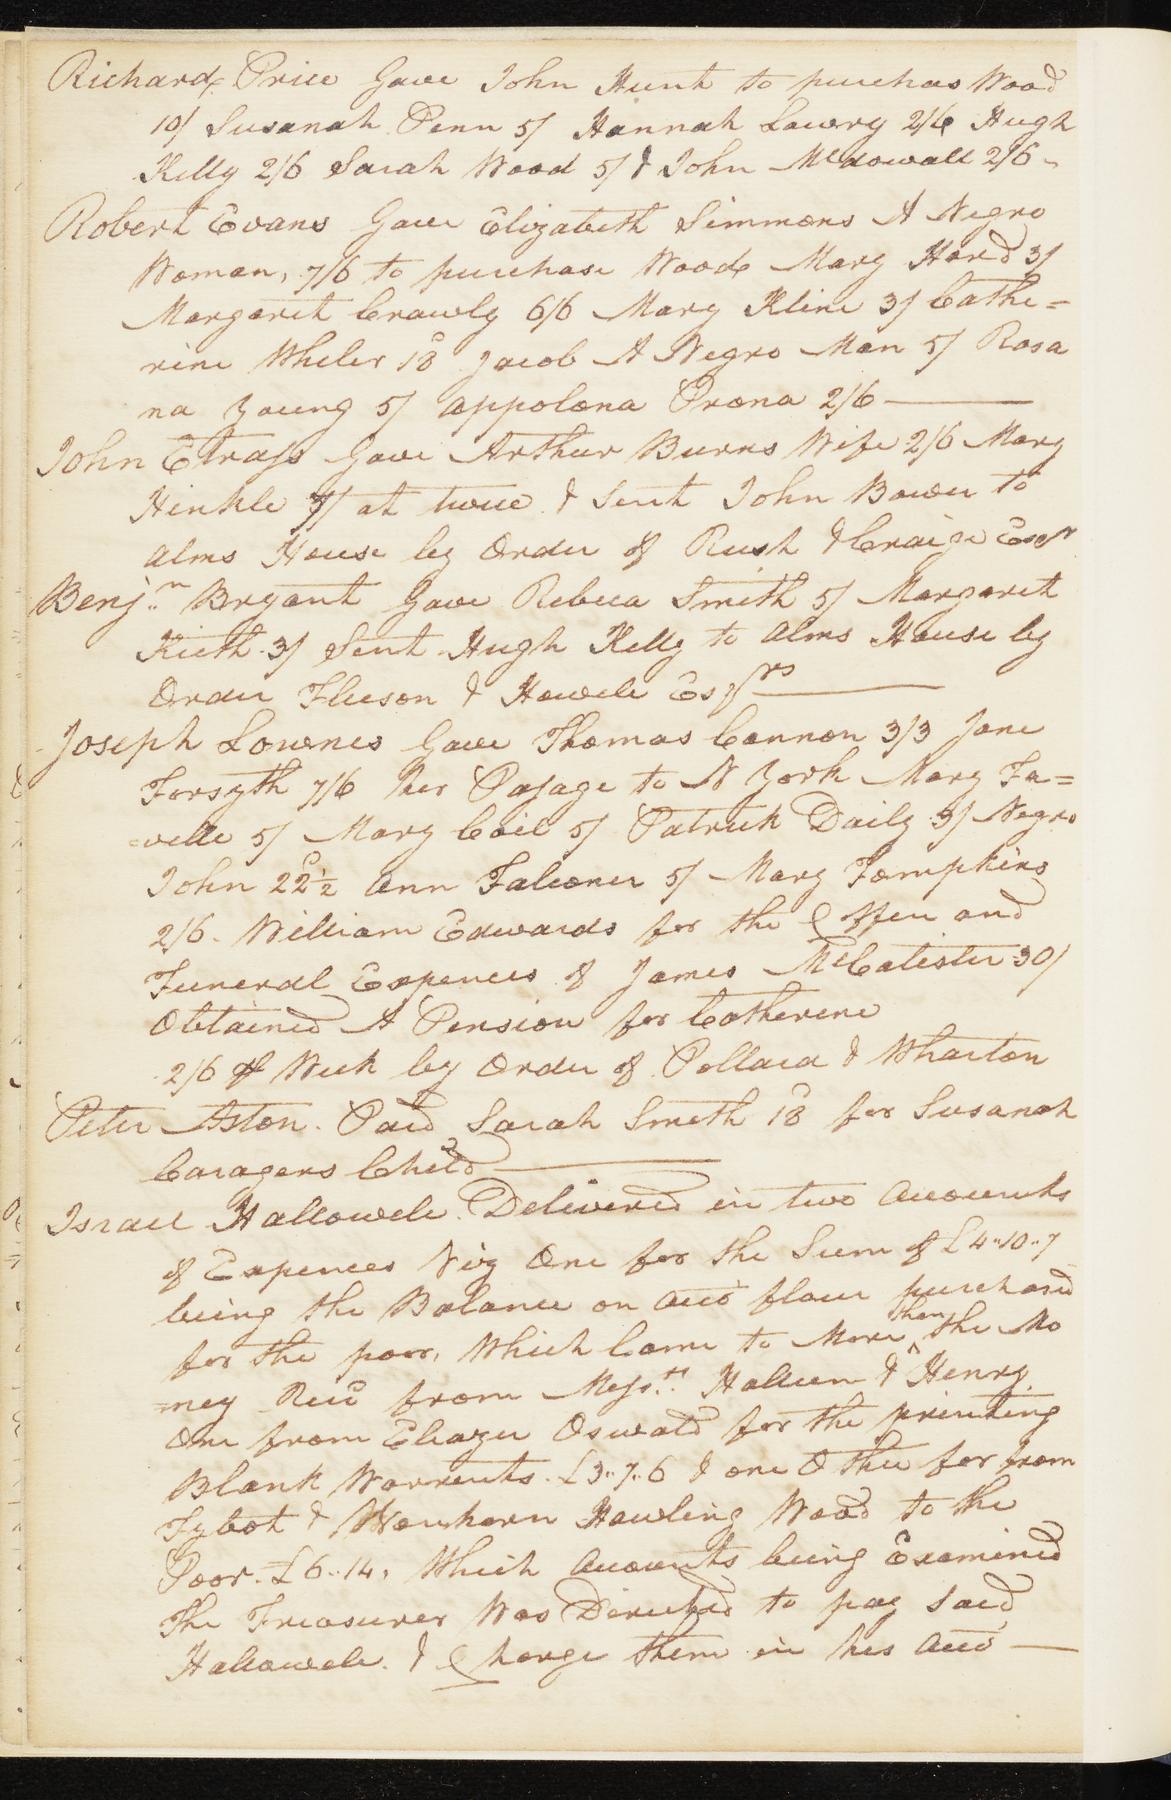 Richard Price Gave John Hunt to purchas Wood
10/ Susanah Penn 5/ Hannah Lowry 2/6 Hugh
Kelly 2/6 Sarah Wood 5/ & John McDowall 2/6
Robert Evans Gave Elizabeth Simmons A Negro
Woman, 7/6 to purchase Wood Mary Hard 3/
Margaret Crawly 6/6 Mary Kline 3/ Cathe=
rine Wheler 18d Jacob A Negro Man 5/ Rosa
na Young 5/ Appolona Prona 2/6
John Gave Arthur Burns Wife 2/6 Mary
Hinkle 7/ at twice & Sent John Bower to
Alms House by Order of Rush & Craige Esqr
Benjn Bryant Gave Rebeca Smith 5/ Margaret
Kieth 3/ Sent Hugh Kelly to Alms House by
Order & Howele Esqrs
Joseph Lownes Gave Thomas Cannon 3/3 Jane
Forsyth 7/6 her Pasage to N York Mary Fa=
=velle 5/ Mary Coil 5/ Patrick Daily 3/ Negro
John 22d½ Ann Falconer 5/ Mary Tompkins
2/6. William Edwards for the Coffen and
Funeral Expences of James McCalester 30/
Obtained A Pension for Catherene
2/6 ⅌ Week by Order of Pollard & Wharton
Peter Aston. Paid Sarah Smith 18d for Susanah
Caragers Child
Israel Hallowele. Delivered in two Accounts
of Expences Viz One for the Sum of £4..10..7
being the Balance on Acco flour purchased
for the poor, Which Came to More than the Mo
=ney Recd from Messrs. & Henry
One from Eleazer Oswald for the printing
Blank Warrents. £3..7..6 & one Other for from
Tybot & Hawling Wood to the
Poor. £6..14, Which Accounts being Examined
The Treasurer Was Derected to pay Said
Hallowele. & Charge them in his Acco